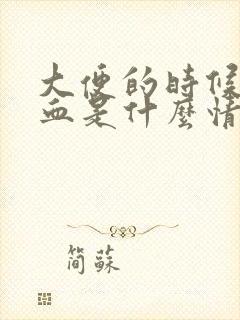 大便的時候
血是什麼情
簡蘇